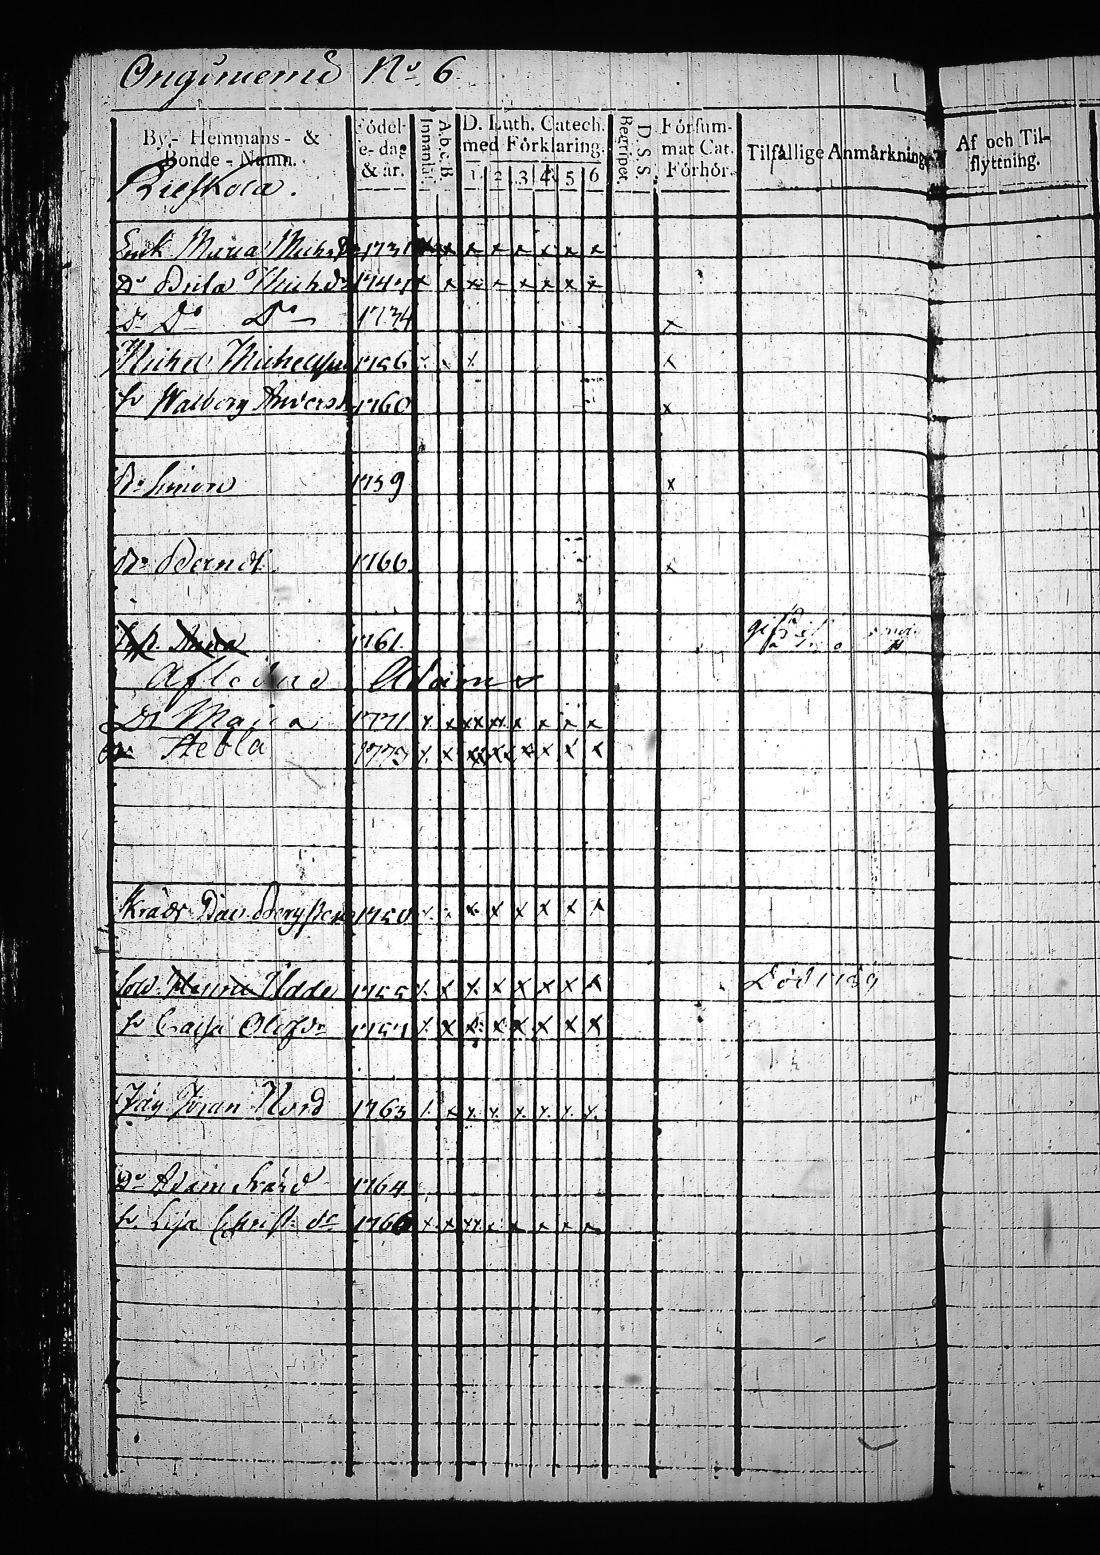 Onginiemi No 6
By,- Hemmans- & Bonde-Namn. Födelse-dag & år. Innanläs. A.b.c.B D. Luth. Catech. med Förklaring. 1 2 3 4 5 6 Begriper. D. S. S. Försummat Cat. Förhör. Tilfällige Anmärkningar Af och Tilflyttning.
Enk. Maria Michsdr 1731 x x x x x x x x
Do Brita Michdr 1747 x x x x x x x x
Do Do Do 1734 x
Michel Michelsson 1756 x
h. Walborg Anders 1760 x
Br Simon 1759 x
Br Berndt 1766 x
Anna 1761
Aflidne Adams
Dr Maija 1771 x x xx xx x x x x
Hebla 1773 x x xx x x x x x
Skrädr 1750 x x x x x x
Sold. Udde 1755 x x x x x x x x Död 1789
h. Caisa Olofsdr 1757 x x x x x x x x
Jöran Nord 1763 x x x x x x x x
Do Adam Svärd 1764
h. Lisa Christ. dr 1766 x x xx x x x x x